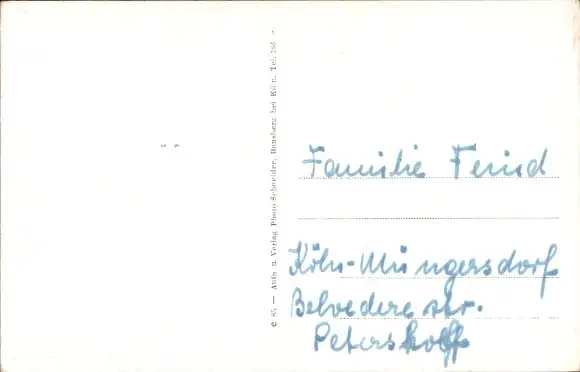 c 85 — Aufn u. Verlag Photo-Schneider, Bensberg bei Köln. Tel. 186
Familie Feind
Köln-Müngersdorf
Belvedere str.
Petershof